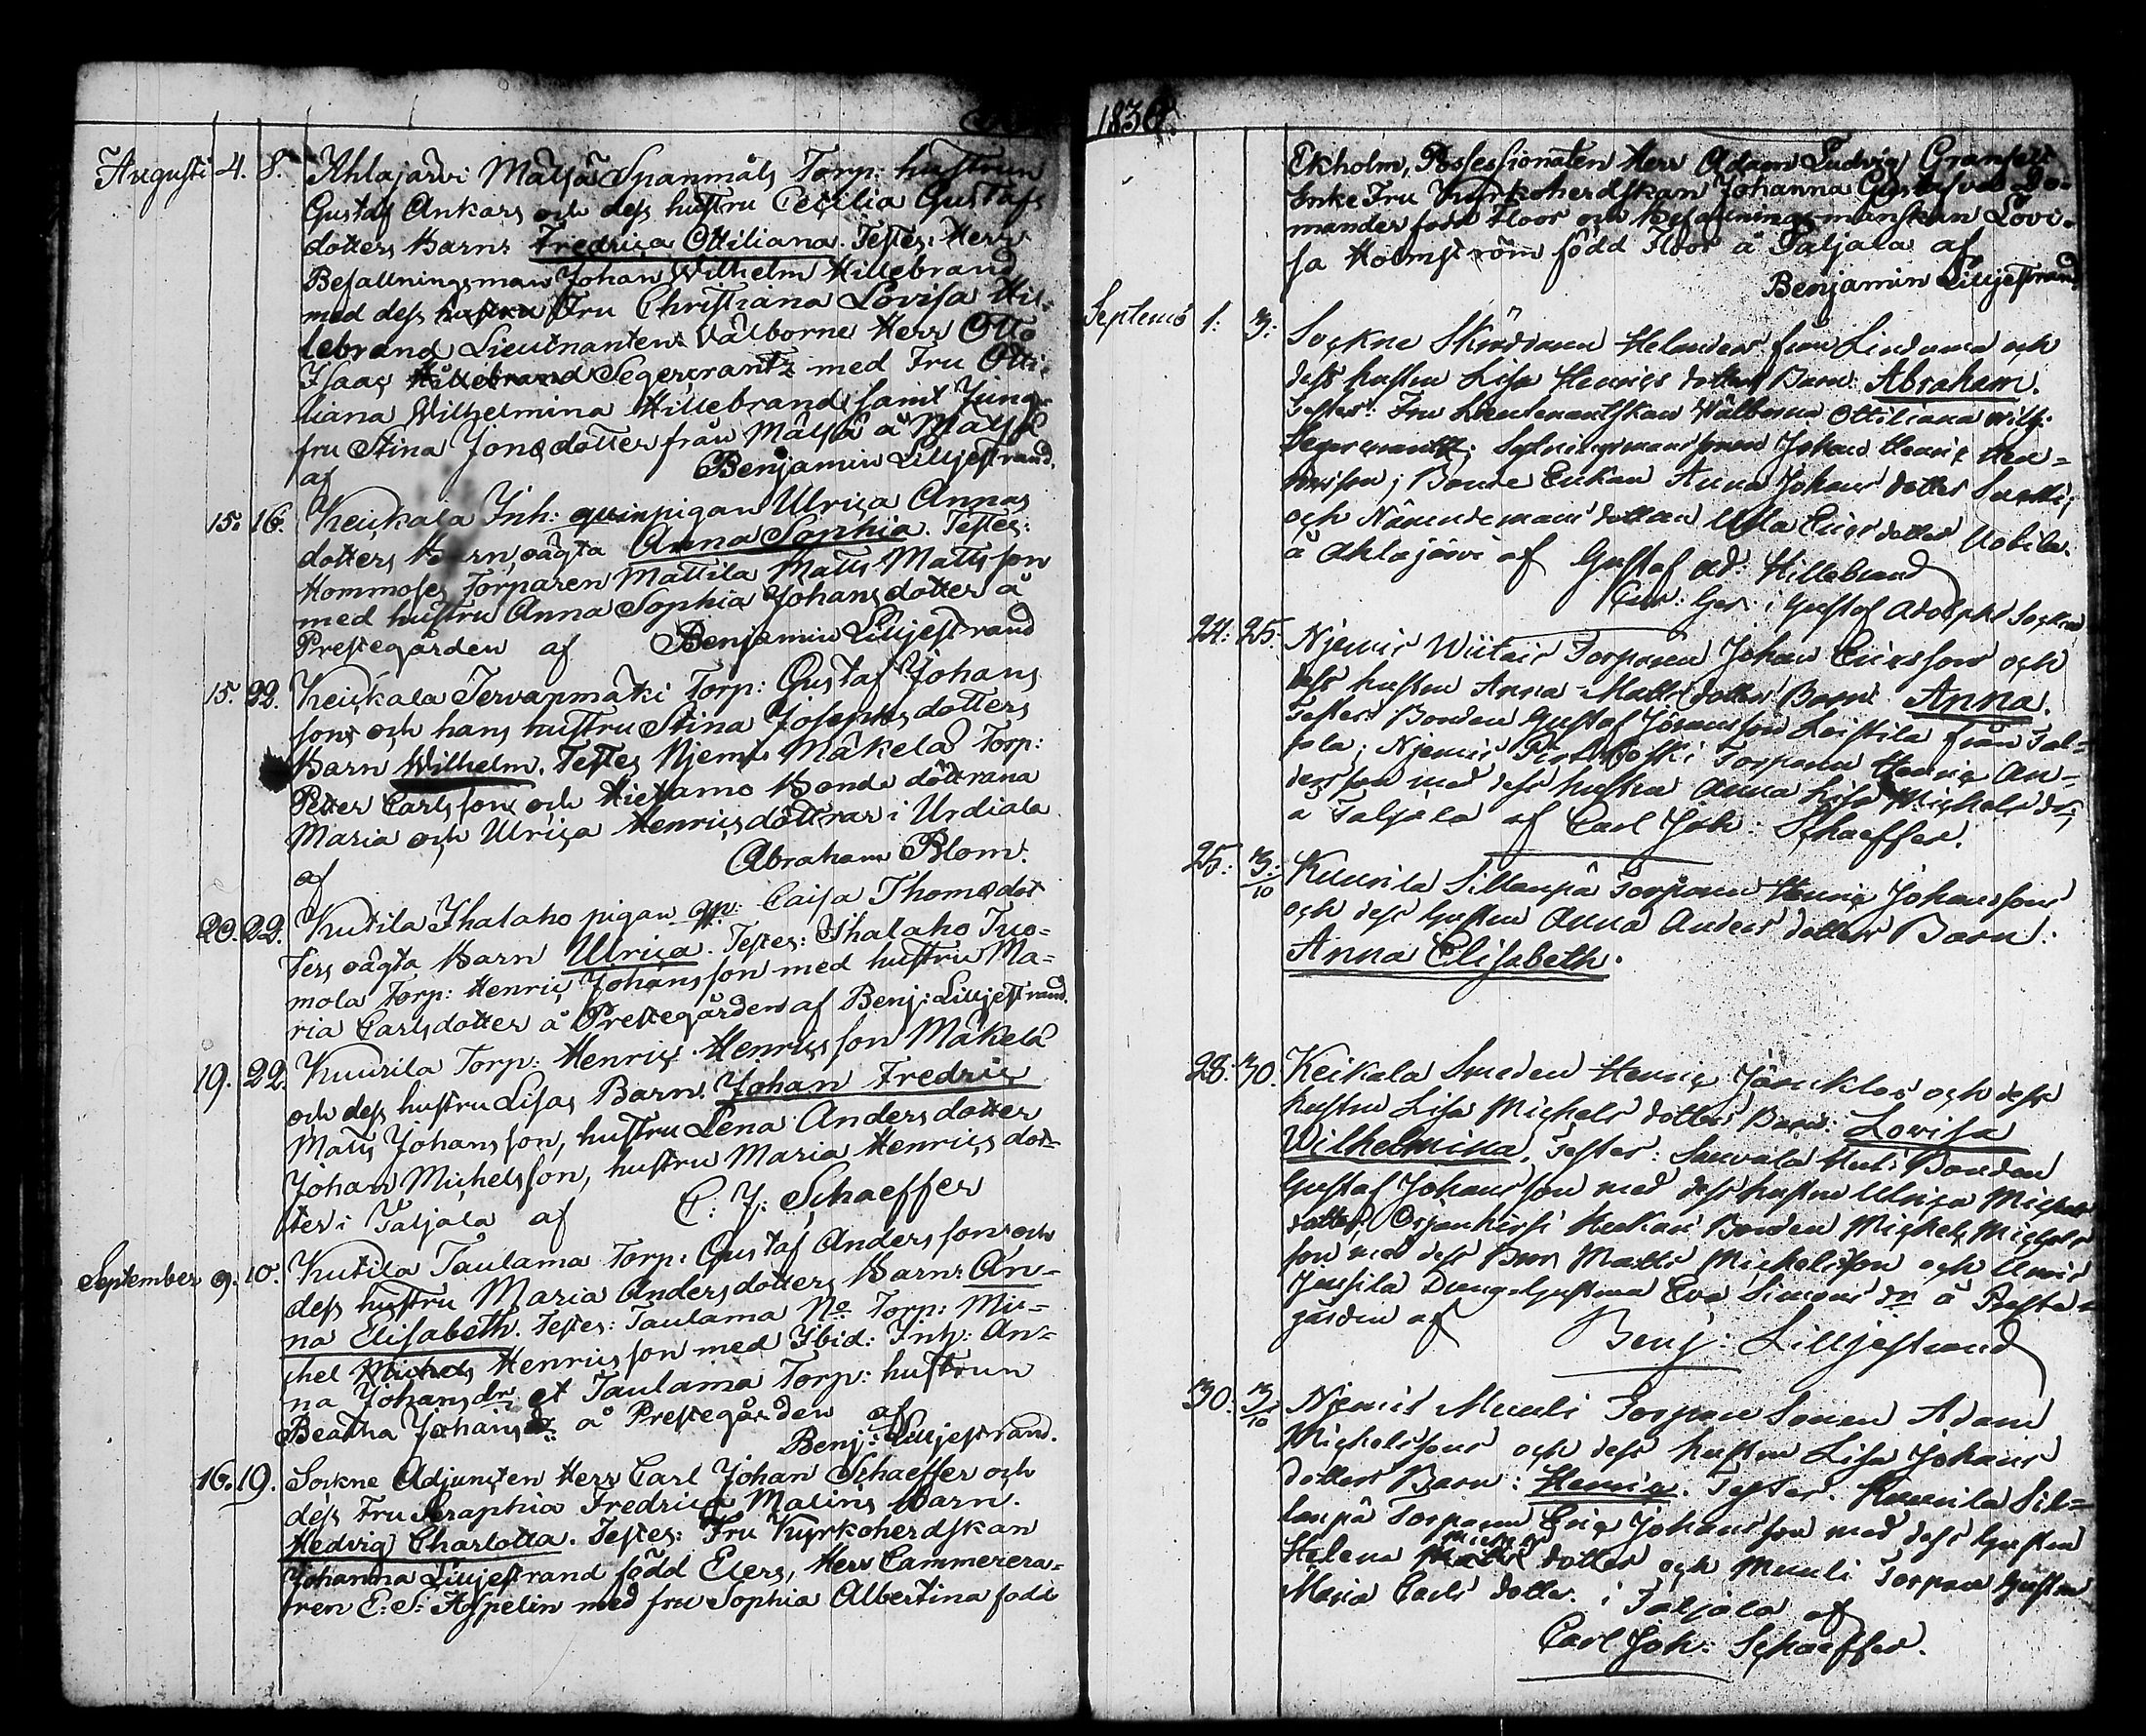 1836.
Augusti 4. 8. Ahlajärvi Mälsä Spanmåls Torp: hustrun
Gustaf Ankars och dess hustru Cecilia Gustafs
dotters Barn: Fredrica Ottiliana. Testes: Herr
Befallningsman Johan Wilhelm Hillebrand
med dess hustru Fru Christiana Lovisa Hil-
lebrand Lieutnanten Välborne Herr Otto
Isaac Hillebrand Segercrantz med Fru Otti-
liana Wilhelmina Hillebrand samt Jung-
fru Stina Jonsdotter från Mälsä å Mälsä
af Benjamin Lilljestrand.
15. 16. Keikala Inh: qvinpigan Ulrica Annas
dotters Barn, oägta Anna Sophia. Testes:
Hommoses Torparen Mattila Matts Mattsson
med hustru Anna Sophia Johansdotter å
Prestegården af Benjamin Lilljestrand
15. 22. Keikala Tervapmäki Torp: Gustaf Johans
sons och hans hustru Stina Josephs dotters
Barn Wilhelm. Testes Njemis Mäkelä Torp:
Petter Carlsson och Hietamo Bonde döttrana
Maria och Ulrica Henricsdöttrar i Urdiala
af Abraham Blom.
20. 22. Kutila Ihalaho pigan qp: Caisa Thomedot
ters oägta Barn Ulrica. Testes: Ihalaho Tuo-
mola Torp: Henric Johansson med hustru Ma-
ria Carlsdotter å Prestegården af Benj: Lilljestrand.
19. 22. Kuurila Torp: Henric Henricsson Mäkelä
och dess hustru Lisas Barn. Johan Fredric
Matts Johansson, hustru Lena Andersdotter
Johan Michelsson, hustru Maria Henrics dot-
ter i Taljala af C: J: Schaeffer
September 9. 10. Kutila Taulama Torp: Gustaf Anderssons och
dess hustru Maria Andersdotters Barn: An-
na Elisabeth. Testes: Taulama No Torp: Mi-
chel Michels Henricsson med Ibid: Inh: An-
na Johansdr et Taulama Torp: hustrun
Beatha Johansdr: å Prestegården af
Benj: Lilljestrand.
16. 19. Sockne Adjuncten Herr Carl Johan Schaeffer och
dess Fru Seraphia Fredrica Malins Barn.
Hedvig Charlotta. Testes: Fru Kyrkoherdskan
Johanna Lilljestrand född Elers, Herr Cammerera-
ren E: S: Aspelin med fru Sophia Albertina född
Ekholm, Possessionaten Herr Adam Ludvig Granfelt
Enke Fru Kyrkoherdskan Johanna Gustafva Do-
mander född Floor och Befallningsmanskan Lovi-
sa Holmström född Floor å Taljala af
Benjamin Lilljestrand
Septemb 1: 3: Sockne Skräddaren Helander från Lindama och
dess hustru Lisa Henrics dotters Barn: Abraham.
Testes: Fru Lieutenantskan Wälborna Ottiliana Wilh:
Segercrantz; Johan Henric Hen-
ricsson; Bonde Enkan Anna Johans dotter
och Nämndemans dottren Ulla Erics dotter Uotila
å Ahlajärvi af Gustaf Ad: Hillebrand
i Gustaf Adolphs Sockn
24: 25. Njemis Wiitais Torparen Johan Ericssons och
dess hustru Anna Matts dotters Barn Anna.
Testes: Bonden Gustaf Göransson Leistila från Tal-
jala; Njemis Torparen Henric An-
dersson med dess hustru Anna Lisa Michels dr,
å Taljala af Carl Joh: Schaeffer.
25. 3./10 Kuurila Sillanpä Torparen Henric Johanssons
och dess hustru Anna Anders dotters Barn:
Anna Elisabeth.
28. 30. Keikala Smeden Henric och dess
hustru Lisa Michels dotters Barn: Lovisa
Wilhelmina, Testes: Sauvala Bonden
Gustaf Johansson med dess hustru Ulrica Michels
dotter, Orjanhirsi Bonden Michel Michels
son med dess Bror Matts Michelsson och
Jussila Drängehustrun Eva Simons dr å Preste-
gården af Benj: Lilljestrand
30. 3./10 Njemis Muuli Torpare Sonen Adam
Michelssons och dess hustru Lisa Johans
dotters Barn: Henric. Testes. Kuurila Sil-
lanpä Torparen Eric Johansson med dess hustru
Helena dotter och Muuli Torpare hustrun
Maria Carls dotter. i Taljala af
Carl Joh: Schaeffer.